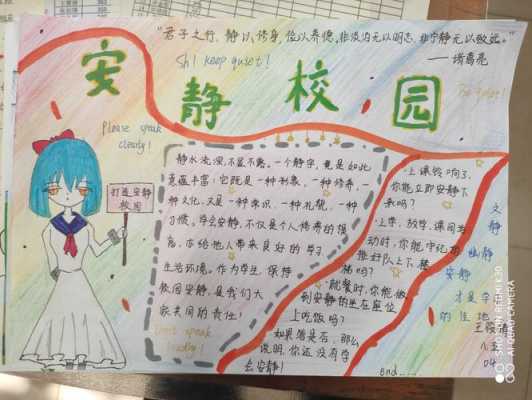 "君子之行,静以修身,俭以养德,非淡泊无以明志,非宁静无以致远。"
——诸葛亮
Sh! keep quiet!
安静校园
Be quiet!
Please speak
clearly!
打造安静
校园
静水流深,不显不露。一个静字,竟是如此
意蕴丰富:它既是一种
习惯。学会安静,不仅是个人修养的提
高,亦给他人带来良好的学习
生活环境。作为学生,保持
校园安静,是我们大
家共同的责任!
Don't speak
loudly!
上课铃响了,
你能立即安静下
来吗?
上学、放学、课间活
动时,你能守纪的
排好队上下楼
梯吗?
就餐时,你能做
到安静的坐在座位
上吃饭吗?
如果答是否,那么
说明,你还没有学
会安静!
end......
文静
幽静
安静
才是学
的佳地
SHOT ON REDMI K30
AI QUAD CAMERA